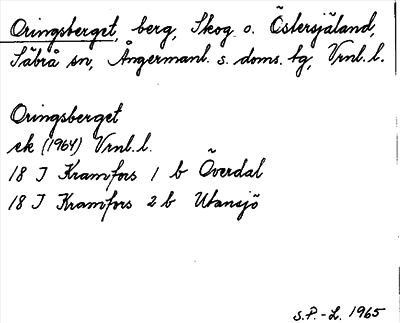 Oringsberget, berg, Skog o. Östersjäland,
Säbrå sn, Ångermanl. s. doms. tg, Vrnl. l.
Oringsberget
ek (1964) Vrnl. l.
18 I Kramfors 1 b Överdal
18 I Kramfors 2 b Utansjö
S.P.-L. 1965